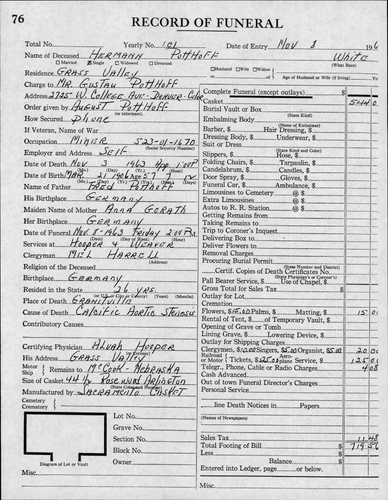 76
RECORD OF FUNERAL
Total No. Yearly No. 101 Date of Entry Nov 8 196
Name of Deceased Hermann Potthoff White
(What Race)
Married Single Widowed Divorced Husband Wife Widow Age of Husband or Wife (if living) Yrs.
Residence Grass Valley
Charge to Mr Gustav Potthoff
Address 2725 W. College Ave. Denver-Colo
Order given by August Potthoff
(or informant)
How Secured Phone
If Veteran, Name of War
Occupation Miner 523-01-1670
(Social Security Number)
Employer and Address Self
Date of Death Nov 3 1963
Date of Birth 1906 Age 57
Name of Father Fred Potthoff
His Birthplace Germany
Maiden Name of Mother Anna Gorath
Her Birthplace Germany
Date of Funeral Nov 8-1963 Friday 2:00 P.M.
Services at Hooper & Weaver
Clergyman Mel Harrell
Religion of the Deceased
Birthplace Germany
Resided in the State 26 yrs.
Place of Death Graniteville
Cause of Death Calcific Aortic Stenosis
Contributory Causes
Certifying Physician Alvah Hooper
His Address Grass Valley
Motor
Ship Remains to McCook-Nebraska
Size of Casket 44 1/2 Rosewood Arlington
(State Color and Number)
Manufactured by Sacramento Casket
Cemetery
Crematory
Lot No.
Grave No.
Section No.
Block No.
Owner
Diagram of Lot or Vault
Misc.
Complete Funeral (except outlays) $
Casket 544 0
Burial Vault or Box
(State Kind)
Embalming Body
(Name of Embalmer)
Barber, $ Hair Dressing, $
Dressing Body, $ Underwear, $
Suit or Dress
(State Kind and Color)
Slippers, $ Hose, $
Folding Chairs, $ Tarpaulin, $
Candelabrum, $ Candles, $
Door Spray, $ Gloves, $
Funeral Car, $ Ambulance, $
Limousines to Cemetery @ $
Extra Limousines @ $
Autos to R. R. Station @ $
Getting Remains from
Taking Remains to
Trip to Coroner's Inquest
Delivering Box to
Deliver Flowers to
Removal Charges
Procuring Burial Permit
(State Number and District)
Certif. Copies of Death Certificates No.
Pall Bearer Service, $ Use of Chapel, $
Gross Total for Sales Tax $
Outlay for Lot
Cremation
Flowers, $15.00 Palms, $ Matting, $ 15 0
Rental of Tent, $ of Temporary Vault, $
Opening of Grave or Tomb
Lining Grave, $ Lowering Device, $
Outlay for Shipping Charges
Clergymen, $10.00 Singers, $5.00 Organist, $5.00 20 0
Railroad Aero-
or Motor Tickets, $125.00 plane Service, $ 125 0
Telegr., Phone, Cable or Radio Charges 4 08
Cash Advanced
Out of town Funeral Director's Charges
Personal Service
line Death Notices in Papers
(Names of Newspapers)
Sales Tax 11 48
Total Footing of Bill $ 719 56
Less $
Balance $
Entered into Ledger, page or below.
Misc.